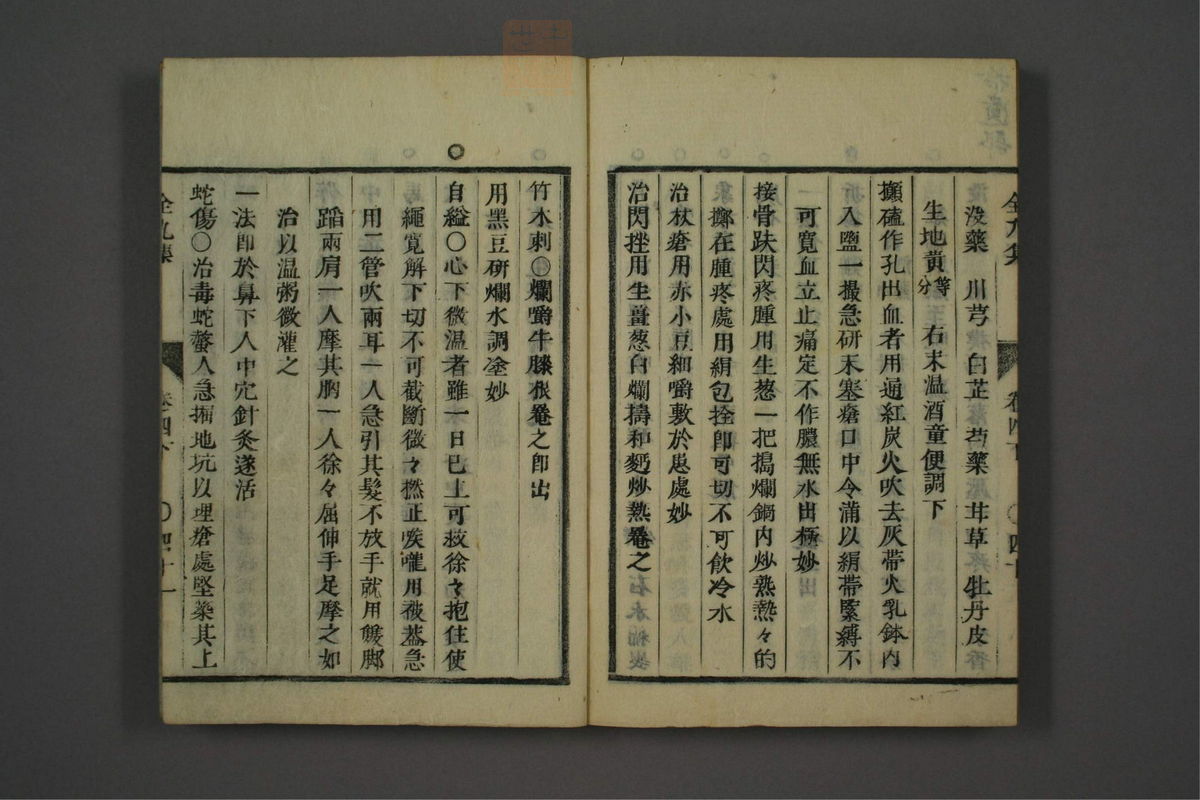 全九集 卷四下 〇 四十
沒藥 川芎 白芷 芍藥 甘草 牡丹皮
生地黃 各等分 右末温酒童便調下
攧磕作孔出血者用通紅炭火吹去灰帶火乳鉢內
入鹽一撮急研末塞瘡口中令滿以絹帶緊縛不
可寬血立止痛定不作膿無水出極妙
接骨趺閃疼腫用生葱一把搗爛鍋內炒熱熱々的
擲在腫疼處用絹包拴卽可切不可飮冷水
治杖瘡用赤小豆細嚼敷於患處妙
治閃挫用生薑葱白爛擣和麪炒熱罨之
竹木刺〇爛嚼牛膝根罨之卽出
用黑豆研爛水調塗妙
〇
自縊〇心下微温者雖一日已上可救徐々抱住使
繩寬解下切不可截斷微々撚正喉嚨用被蓋急
用二管吹兩耳一人急引其髮不放手就用髋脚
蹈兩肩一人摩其胸一人徐々屈伸手足摩之如
治以温粥微灌之
一法卽於鼻下人中穴針灸遂活
蛇傷〇治毒蛇螫人急掘地坑以埋瘡處堅築其上
全九集 卷四下 〇 四十一